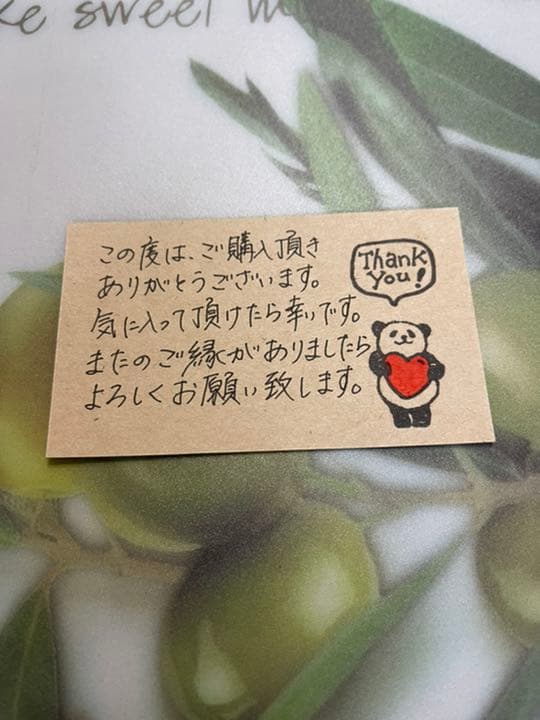 ke sweet m
この度は、ご購入頂き
ありがとうございます。
気に入って頂けたら幸いです。
またのご縁がありましたら
よろしくお願い致します。
Thank
You!